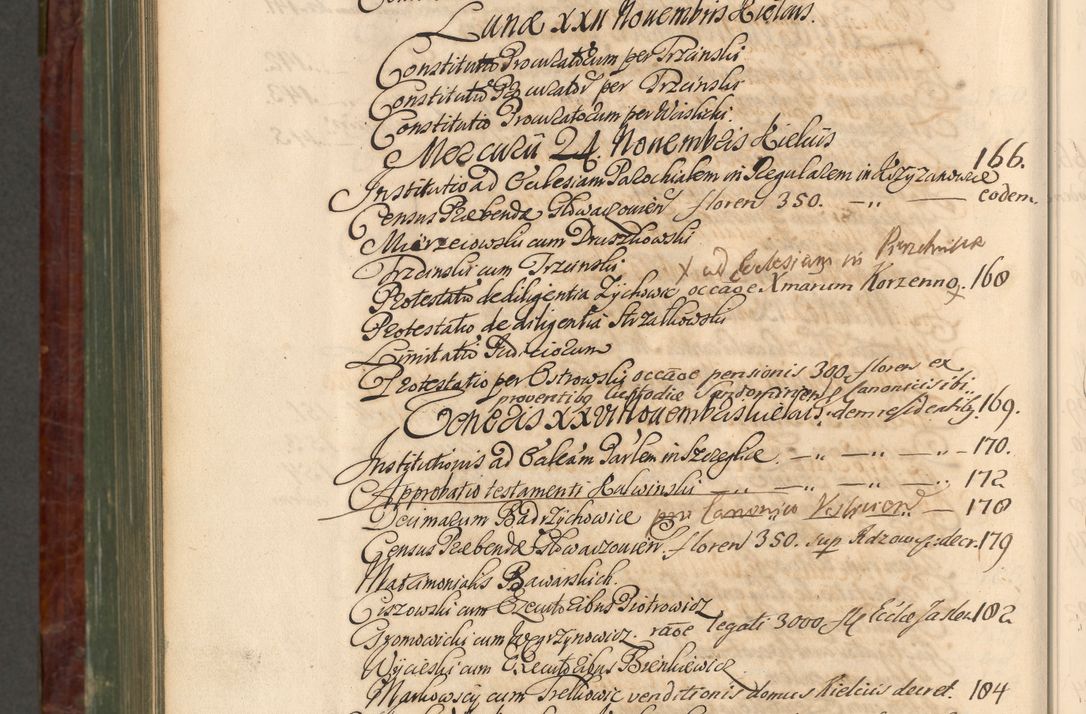 Lunæ XXII Novembris Kielciis.
Constitutio Procuratorum per Trzcinski
Constitutio Procurator per Trzcinski
Constitutio Procuratorum per Wislicki.
Mercurii 24 Novembris Kielciis
Institutio ad Eclesiam Parochialem in Regularem in Krzyzanowice 166.
Census Præbendæ Slowaz floren 350. — „ — eodem.
Mierzeiowski cum Druszkowski
Trzcinski cum Trzcinski X ad Ecclesiam in
Protestatio de diligentia Zychowic occãoe Xmarum Korzenno. 168
Protestatio de diligentia Strzalkowski
Limitatio Judiciorum
Protestatio per Ostrowski occãoe pensionis 300 floren ex
proventibus Custodiæ Canonicis ibi
Veneris XXVI Novembris Kielciis. dem residentibus 169.
Institutionis ad Eccleam Parlem in Szczeglice. — „ — „ — „ — 170.
Approbatio testamenti Kalwinski — „ — „ — „ — 172
Decimarum Badrzychowice pro Canonico — 178
Census Præbendæ floren 350. sup decr. 179
Matrimonialis Bawarskich.
Ciszowski cum Executoribus Piotrowicz
Szomowicki cum Węgrzynowicz. rãoe legati 3000 fl Eccłæ 182
Wycieski cum Executoribus Bieńkiewicz
Markowscy cum Trelkowic venditionis domus Kielciis decret. 184